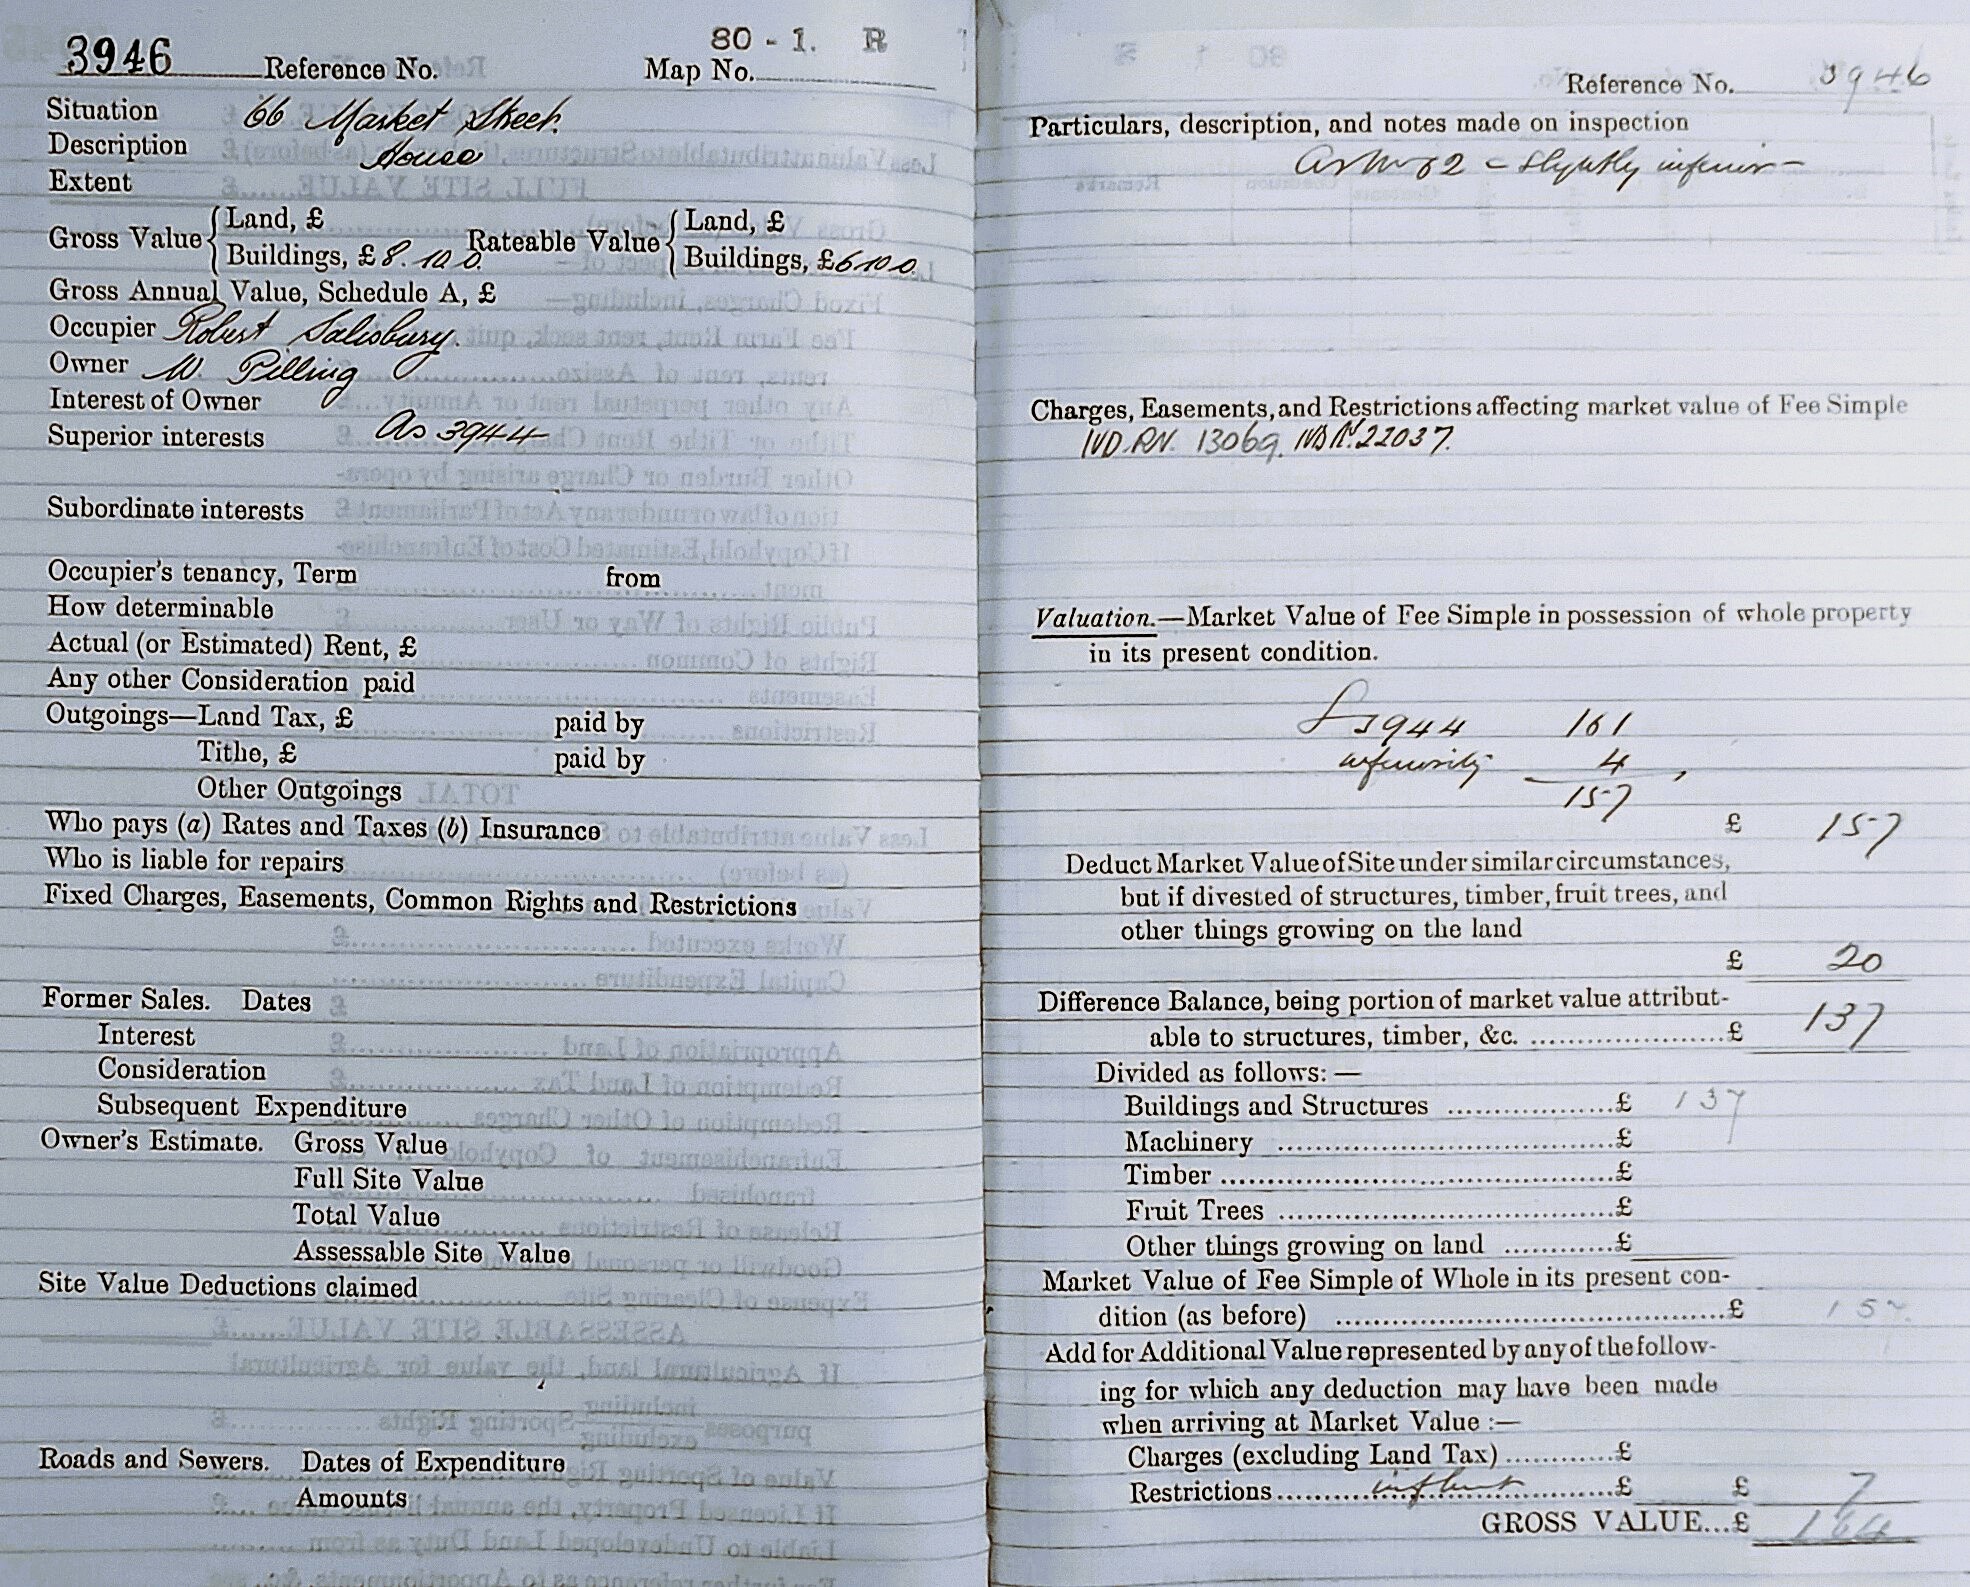 3946 Reference No. Map No. 80 - 1. R
Situation 66 Market Street.
Description House
Extent
Gross Value { Land, £ Rateable Value { Land, £
Buildings, £ 8. 10. 0. Buildings, £ 6 10 0.
Gross Annual Value, Schedule A, £
Occupier Robert Salisbury.
Owner W. Pilling
Interest of Owner
Superior interests As 3944
Subordinate interests
Occupier's tenancy, Term from
How determinable
Actual (or Estimated) Rent, £
Any other Consideration paid
Outgoings—Land Tax, £ paid by
Tithe, £ paid by
Other Outgoings
Who pays (a) Rates and Taxes (b) Insurance
Who is liable for repairs
Fixed Charges, Easements, Common Rights and Restrictions
Former Sales. Dates
Interest
Consideration
Subsequent Expenditure
Owner's Estimate. Gross Value
Full Site Value
Total Value
Assessable Site Value
Site Value Deductions claimed
Roads and Sewers. Dates of Expenditure
Amounts
Reference No. 3946
Particulars, description, and notes made on inspection
As No 62 - slightly inferior -
Charges, Easements, and Restrictions affecting market value of Fee Simple
IVD. RN. 13069. IVD No. 22037.
Valuation.—Market Value of Fee Simple in possession of whole property
in its present condition.
3944 161
inferiority 4
157
£ 157
Deduct Market Value of Site under similar circumstances,
but if divested of structures, timber, fruit trees, and
other things growing on the land
£ 20
Difference Balance, being portion of market value attribut-
able to structures, timber, &c. ......................£ 137
Divided as follows:—
Buildings and Structures ..................£ 137
Machinery ......................................£
Timber .............................................£
Fruit Trees .......................................£
Other things growing on land ............£
Market Value of Fee Simple of Whole in its present con-
dition (as before) ..........................................£ 157.
Add for Additional Value represented by any of the follow-
ing for which any deduction may have been made
when arriving at Market Value :—
Charges (excluding Land Tax) ............£
Restrictions....................................£ £ 7
GROSS VALUE...£ 164